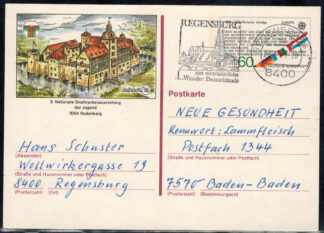 REGENSBURG
60
das mittelalterliche
Wunder Deutschlands
8400
8. Nationale Briefmarkenausstellung
der Jugend
3054 Rodenberg
Postkarte
Hans Schuster
(Absender)
Wollwirkergasse 19
(Straße und Hausnummer oder Postfach)
8400 Regensburg
(Postleitzahl) (Ort)
NEUE GESUNDHEIT
Kennwort: Lammfleisch
Postfach 1344
(Straße und Hausnummer oder Postfach)
7570 Baden-Baden
(Postleitzahl) (Bestimmungsort)